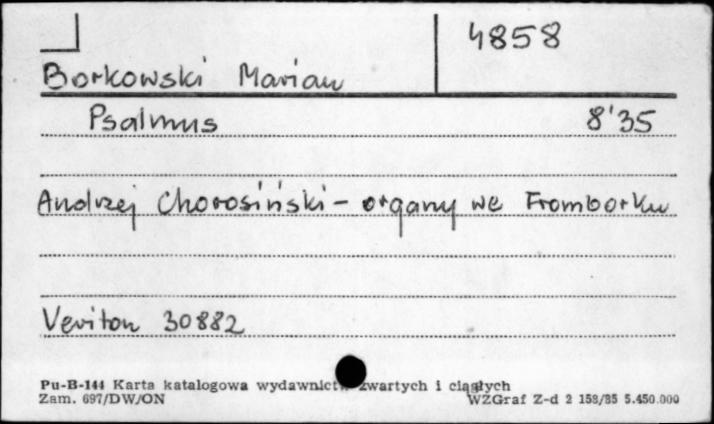 4858
Borkowski Marian
Psalmus 8'35
Andrzej Chorosiński - organy we Fromborku
Veriton 30882
Pu-B-144 Karta katalogowa wydawnictw zwartych i ciągłych
Zam. 697/DW/ON WZGraf Z-d 2 158/85 5.450.000